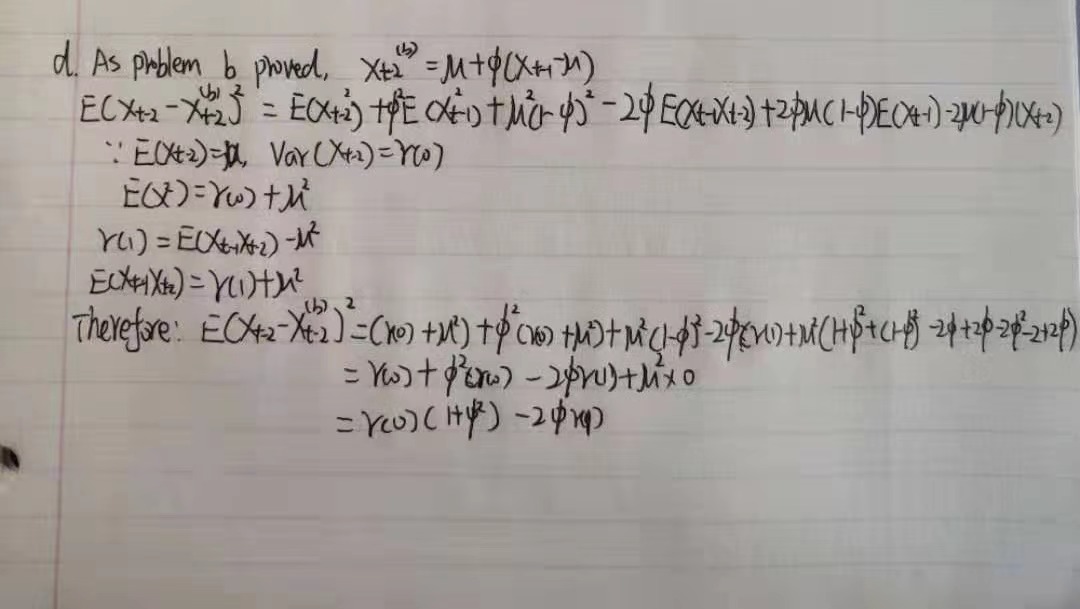 d. As problem b proved, X_{t-2}^{(b)} = μ+φ(X_{t-1}-μ)
E(X_{t-2} - X_{t-2}^{(b)})^2 = E(X_{t-2}^2) + φ^2E(X_{t-1}^2) + μ^2(1-φ)^2 - 2φE(X_{t-1}X_{t-2}) + 2φμ(1-φ)E(X_{t-1}) - 2μ(1-φ)(X_{t-2})
∵ E(X_{t-2})=μ, Var(X_{t-2})=γ(0)
E(X^2)=γ(0)+μ^2
γ(1)=E(X_{t-1}X_{t-2})-μ^2
E(X_{t-1}X_{t-2})=γ(1)+μ^2
Therefore: E(X_{t-2}-X_{t-2}^{(b)})^2=(γ(0)+μ^2)+φ^2(γ(0)+μ^2)+μ^2(1-φ)^2-2φγ(1)+μ^2(1+φ^2+(1-φ)^2-2φ+2φ-2φ^2-2+2φ)
= γ(0)+φ^2γ(0) - 2φγ(1)+μ^2×0
= γ(0)(1+φ^2) - 2φγ(1)